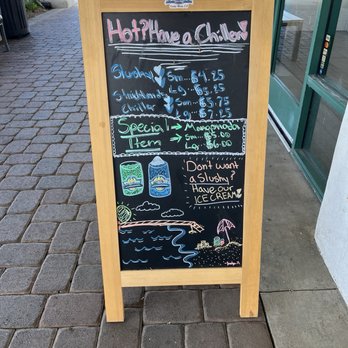 Hot? Have a Chiller
Slushed Sm... $4.25
Lg... $5.25
Chiller Sm... $5.75
Lg... $7.25
Special → Mangonada
Item → Sm. $5.00
Lg. $6.00
Dont want
a Slushy?
Have our
ICE CREAM